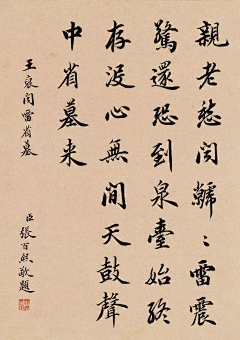 親老愁聞虩々雷震
驚還恐到泉臺始終
存没心無間天鼓聲
中省墓来
王裒聞雷省墓
臣張百熙敬題